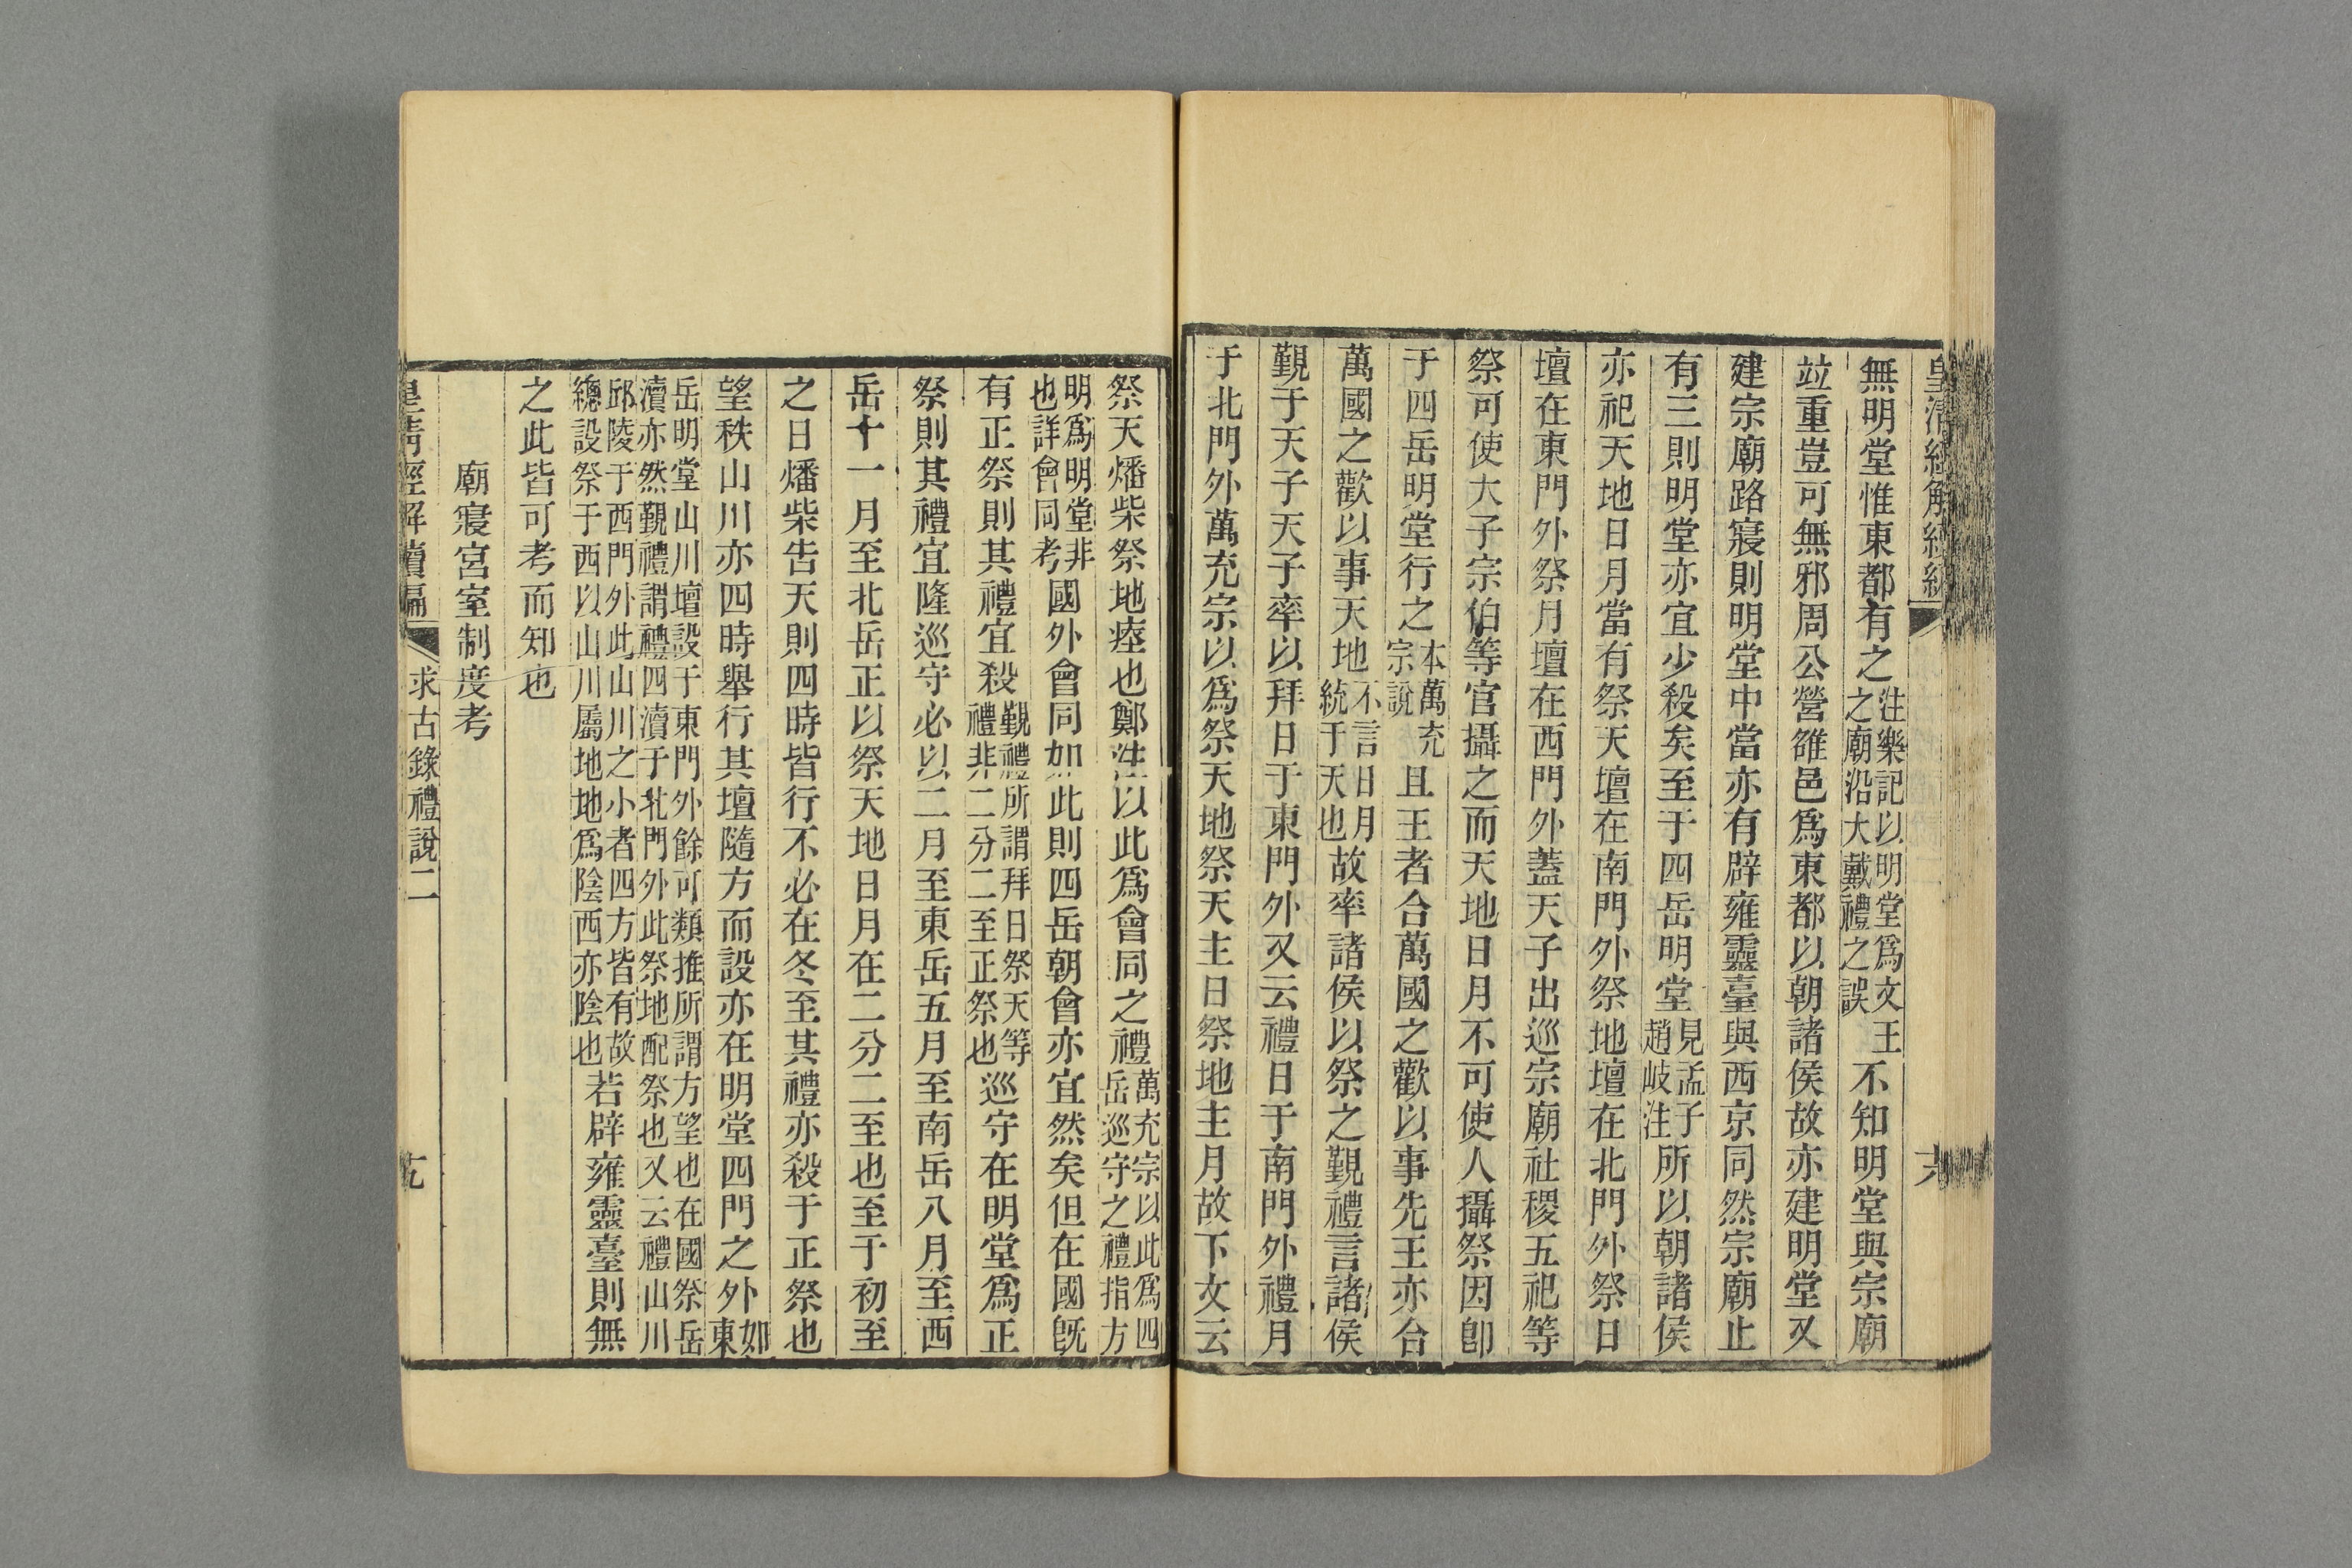 皇清經解續編
无
無明堂惟東都有之注樂記以明堂爲文王之廟沿大戴禮之誤不知明堂與宗廟
竝重豈可無邪周公營雒邑爲東都以朝諸侯故亦建明堂又
建宗廟路寢則明堂中當亦有辟雍靈臺與西京同然宗廟止
有三則明堂亦宜少殺矣至于四岳明堂見孟子趙岐注所以朝諸侯
亦祀天地日月當有祭天壇在南門外祭地壇在北門外祭日
壇在東門外祭月壇在西門外蓋天子出巡宗廟社稷五祀等
祭可使大子宗伯等官攝之而天地日月不可使人攝祭因卽
于四岳明堂行之本萬充宗說且王者合萬國之歡以事先王亦合
萬國之歡以事天地不言日月統于天也故率諸侯以祭之覲禮言諸侯
覲于天子天子率以拜日于東門外又云禮日于南門外禮月
于北門外萬充宗以爲祭天地祭天主日祭地主月故下文云
祭天燔柴祭地瘞也鄭注以此爲會同之禮萬充宗以此爲四岳巡守之禮指方
明爲明堂非也詳會同考國外會同如此則四岳朝會亦宜然矣但在國旣
有正祭則其禮宜殺覲禮所謂拜日祭天等禮非二分二至正祭也巡守在明堂爲正
祭則其禮宜隆巡守必以二月至東岳五月至南岳八月至西
岳十一月至北岳正以祭天地日月在二分二至也至于初至
之日燔柴告天則四時皆行不必在冬至其禮亦殺于正祭也
望秩山川亦四時舉行其壇隨方而設亦在明堂四門之外如東
岳明堂山川壇設于東門外餘可類推所謂方望也在國祭岳瀆亦然覲禮謂禮四瀆于北門外此祭地配祭也又云禮山川
邱陵于西門外此山川之小者四方皆有故總設祭于西以山川屬地地爲陰西亦陰也若辟雍靈臺則無
之此皆可考而知也
廟寢宮室制度考
皇清經解續編
求古錄禮說二